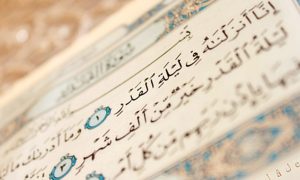 سُورَةُ الْقَدْرِ
إِنَّا أَنزَلْنَٰهُ فِي لَيْلَةِ الْقَدْرِ ۝١ وَمَا أَدْرَىٰكَ مَا
لَيْلَةُ الْقَدْرِ خَيْرٌ مِّنْ أَلْفِ شَهْرٍ ۝٣
بِإِذْنِ رَبِّهِم مِّن كُلِّ أَمْرٍ